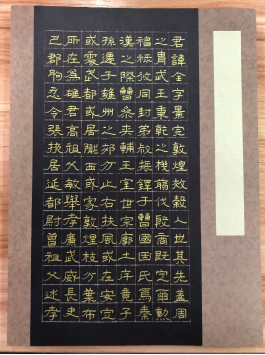 君諱全字景完敦煌效穀人也其先蓋周
之胄武王秉乾之機翦伐殷商既定爾勳
福祿攸同封弟叔振鐸于曹國因氏焉秦
漢之際曹參夾輔王室世宗廓土斥竟子
孫遷于雍州之郊分止右扶風或在安定
或處武都或居隴西或家敦煌枝分葉布
所在為雄君高祖父敏舉孝廉武威長史
巴郡朐忍令張掖居延都尉曾祖父述孝